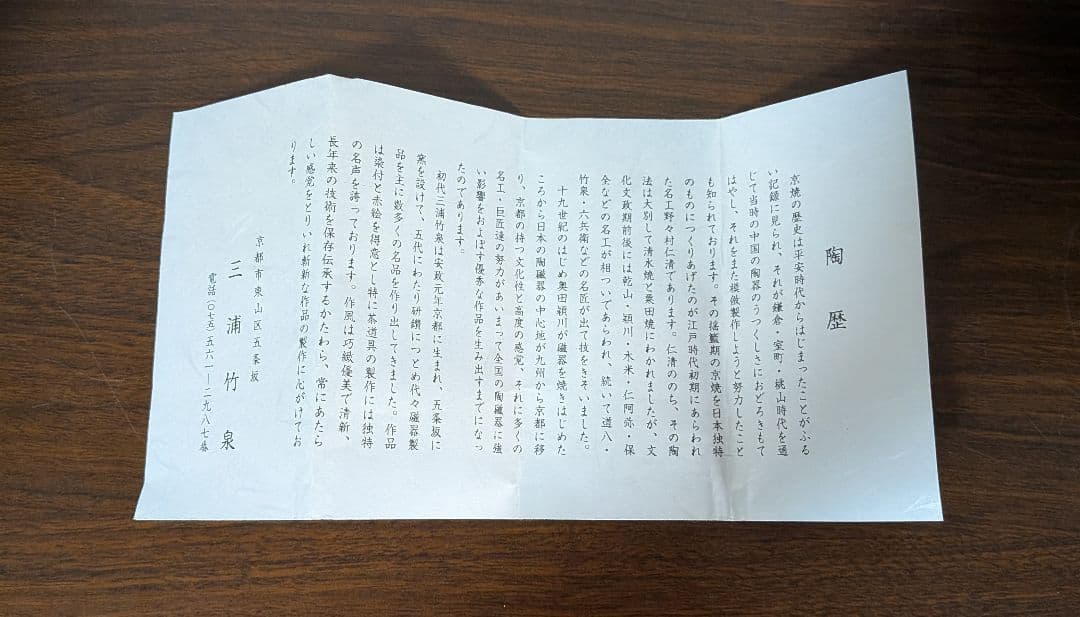 陶歴
京焼の歴史は平安時代からはじまったことがふる
い記録に見られ、それが鎌倉・室町・桃山時代を通
じて当時の中国の陶器のうつくしさにおどろきもて
はやし、それをまた模倣製作しようと努力したこと
も知られております。その揺籃期の京焼を日本独特
のものにつくりあげたのが江戸時代初期にあらわれ
た名工野々村仁清であります。仁清ののち、その陶
法は大別して清水焼と粟田焼にわかれましたが、文
化文政期前後には乾山・頴川・木米・仁阿弥・保
全などの名工が相ついであらわれ、続いて道八・
竹泉・六兵衛などの名匠が出て技をきそいました。
十九世紀のはじめ奥田頴川が磁器を焼きはじめた
ころから日本の陶磁器の中心地が九州から京都に移
り、京都の持つ文化性と高度の感覚、それに多くの
名工・巨匠達の努力があいまって全国の陶磁器に強
い影響をおよぼす優秀な作品を生み出すまでになっ
たのであります。
初代三浦竹泉は安政元年京都に生まれ、五条坂に
窯を設けて、五代にわたり研鑽につとめ代々磁器製
品を主に数多くの名品を作り出してきました。作品
は染付と赤絵を得意とし特に茶道具の製作には独特
の名声を誇っております。作風は巧緻優美で清新、
長年来の技術を保存伝承するかたわら、常にあたら
しい感覚をとりいれ斬新な作品の製作に心がけてお
ります。
京都市東山区五条坂
三浦竹泉
電話(〇七五)五六一―二九八七番